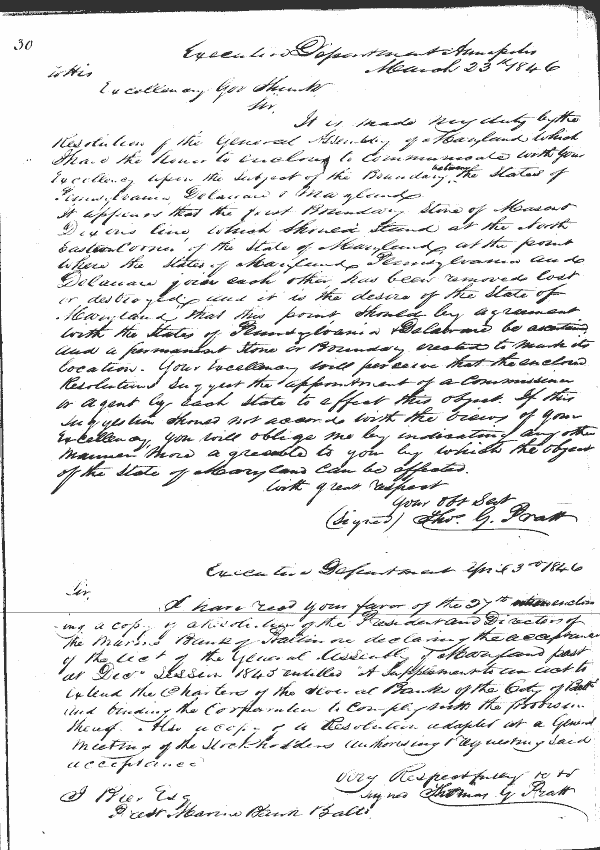 30
Executive Department Annapolis
March 23rd 1846
To His
Excellency Gov Shunk
Sir,
It is made my duty by the
Resolution of the General Assembly of Maryland which
I have the honor to enclose, to communicate with your
Excellency upon the subject of the Boundary between the States of
Pennsylvania, Delaware & Maryland.
It appears that the first Boundary Stone of Mason &
Dixons line, which should stand at the North
Eastern corner of the State of Maryland, at the point
where the States of Maryland, Pennsylvania and
Delaware join each other, has been removed, lost
or destroyed, and it is the desire of the State of
Maryland, that this point should by agreement
with the States of Pennsylvania & Delaware be ascertained
and a permanent Stone or Boundary erected to mark its
location. Your Excellency will perceive that the enclosed
Resolutions suggest the appointment of a Commissioner
or Agent by each state to effect this object. If this
suggestion should not accord with the views of your
Excellency, you will oblige me by indicating any other
manner more agreeable to you by which the object
of the State of Maryland can be effected.
With great respect
Your Obt Sert
(Signed) Tho. G. Pratt
Executive Department April 3rd 1846
Sir,
I have read your favor of the 27th enclos
ing a copy of a Resolution of the President and Directors of
the Marine Bank of Baltimore declaring the acceptance
of the Act of the General Assembly of Maryland past
at Decr Session 1845 entitled "A Supplement to an act to
extend the Charters of the several Banks of the City of Balto
and binding the Corporation to comply with the provisions
thereof. Also a copy of a Resolution adopted at a General
Meeting of the Stockholders authorising & requesting said
acceptance
Very Respectfully
signed Thomas G Pratt
J Bier Esq
Prest Marine Bank Balto